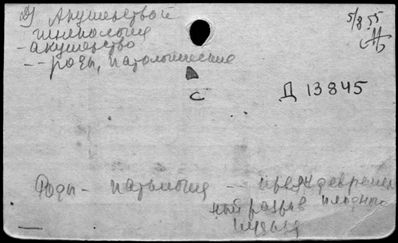 2) Акушерство и
гинекология
- акушерство
-- роды, патологические
5/8 55
С
Д 13845
Роды - патология -- преждевремен
ный разрыв плодных
пузыря